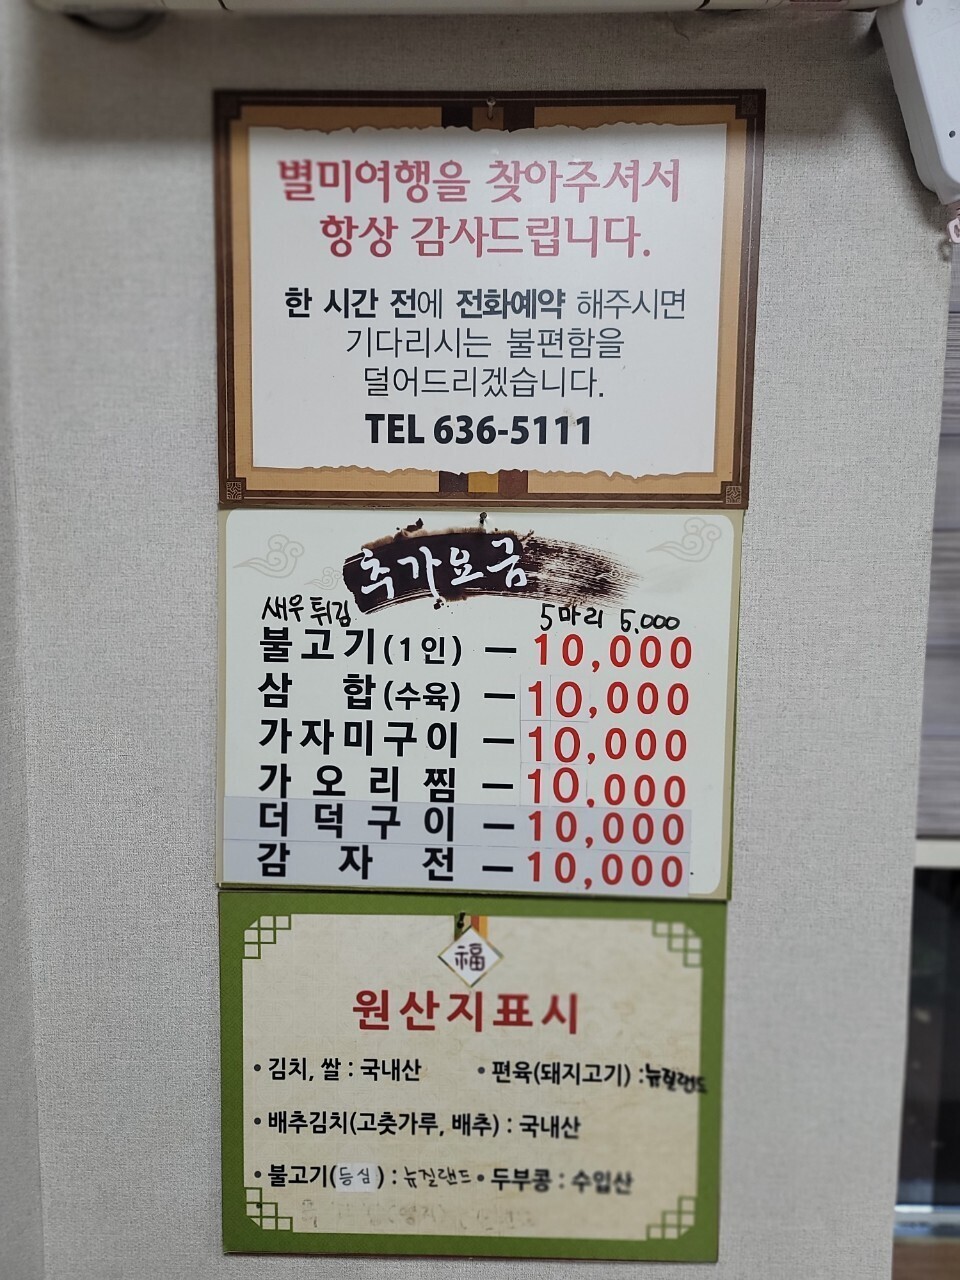 별미여행을 찾아주셔서
항상 감사드립니다.
한 시간 전에 전화예약 해주시면
기다리시는 불편함을
덜어드리겠습니다.
TEL 636-5111
추가요금
새우튀김 5마리 5,000
불고기(1인) — 10,000
삼합(수육) — 10,000
가자미구이 — 10,000
가오리찜 — 10,000
더덕구이 — 10,000
감자전 — 10,000
福
원산지표시
• 김치, 쌀 : 국내산 • 편육(돼지고기) : 뉴질랜드
• 배추김치(고춧가루, 배추) : 국내산
• 불고기(등심) : 뉴질랜드 • 두부콩 : 수입산